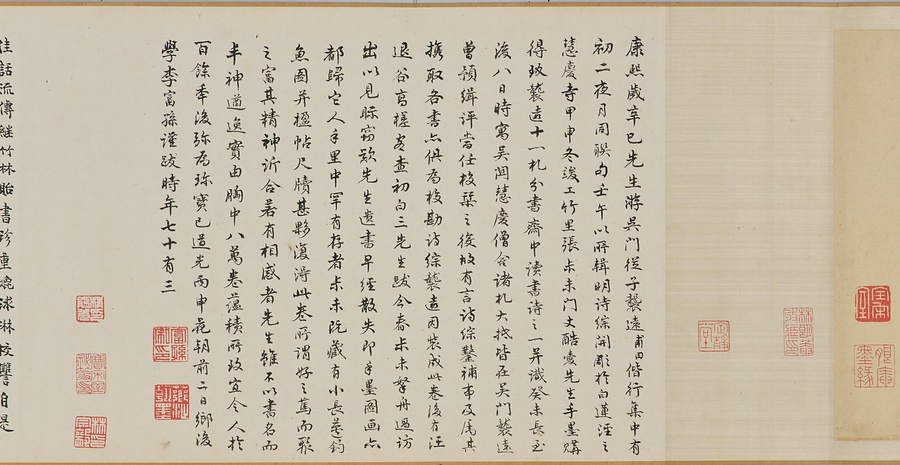 康熙歲辛巳先生游吳門從子襲遠甫田偕行集中有
初二夜月同聯句壬午以所輯明詩綜開彫於白蓮涇之
慧慶寺甲申冬竣工竹里張未未門丈酷愛先生手墨購
得致襲遠十一札分書齋中读書詩之一并識癸未長至
後八日時寓吳閶慧慶僧舍諸札大抵皆在吳門襲遠
曾預緝評嘗任校栞之後故有言詩綜鑿補事及庀其
攜取各書亦俱為校勘詩綜襲遠因裝成此卷後有汪
退谷高槎客查初白三先生跋今春未未拏舟過訪
出以見眎竊歎先生遺書早經散失即手墨圖画亦
都歸它人手里中罕有存者未未既藏有小長蘆釣
魚圖并楹帖尺牘甚夥復得此卷所謂好之篤而聚
之富其精神訢合若有相感者先生雖不以書名而
丰神遒逸實由胸中八萬卷蘊積所致宜令人於
百餘年後弥為珍寶已道光丙申花朝前二日鄉後
學李富孫謹跋時年七十有三
佳話流傳繼竹林貽書珍重琬球淋校讐自是